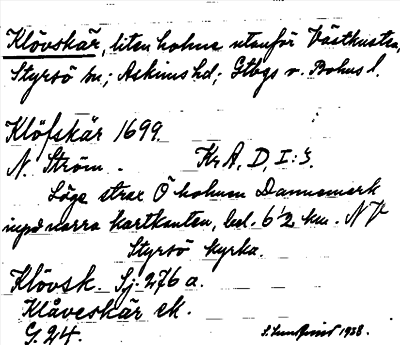 Klövskär, liten holme utanför Västkusten,
Styrsö sn; Askims hd; Gtbgs o. Bohus l.
Klöfskär 1699.
N. Ström. Kr A, D, I: 3.
Läge strax Ö holmen Dannemark
invid norra kartkanten, bel. 6 1/2 km. NV
Styrsö kyrka.
Klövsk. Sj. 276 a.
Klåveskär ek.
G. 24.
1938.